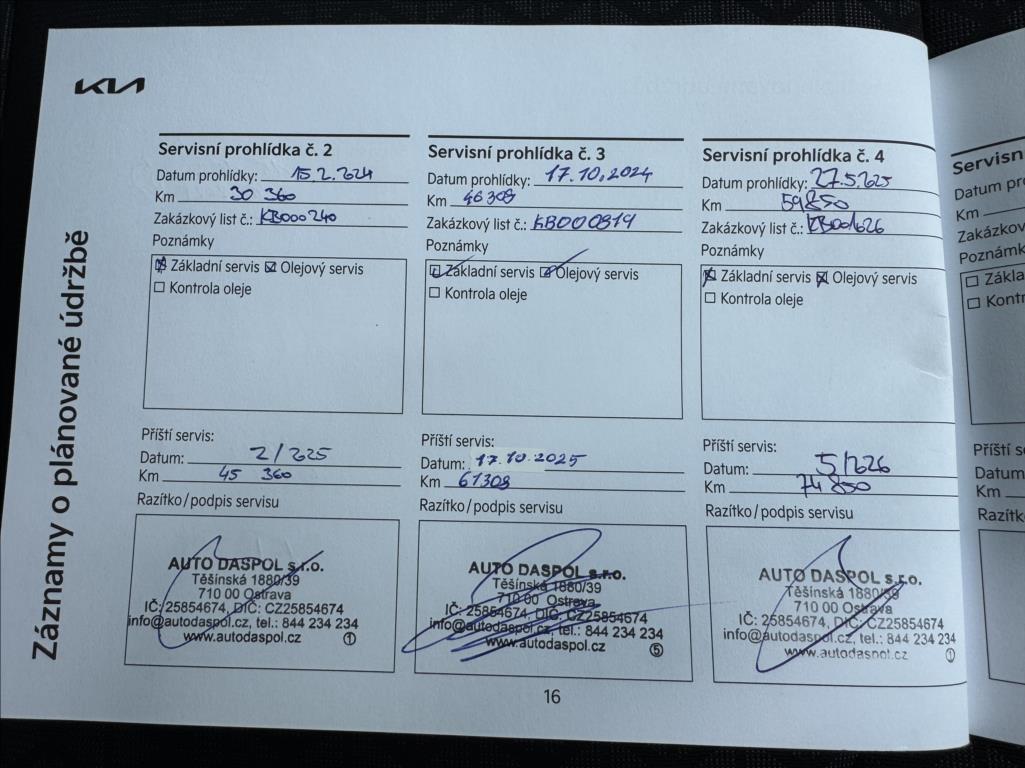 KIA
Záznamy o plánované údržbě
Servisní prohlídka č. 2
Datum prohlídky: 15.2.2024
Km 30 360
Zakázkový list č.: KB000240
Poznámky
Základní servis Olejový servis
Kontrola oleje
Příští servis:
Datum: 2/2025
Km 45 360
Razítko/podpis servisu
AUTO DASPOL s.r.o.
Těšínská 1880/39
710 00 Ostrava
IČ: 25854674, DIČ: CZ25854674
info@autodaspol.cz, tel.: 844 234 234
www.autodaspol.cz 1
Servisní prohlídka č. 3
Datum prohlídky: 17.10.2024
Km 46308
Zakázkový list č.: KB000819
Poznámky
Základní servis Olejový servis
Kontrola oleje
Příští servis:
Datum: 17.10.2025
Km 61308
Razítko/podpis servisu
AUTO DASPOL s.r.o.
Těšínská 1880/39
710 00 Ostrava
IČ: 25854674, DIČ: CZ25854674
info@autodaspol.cz, tel.: 844 234 234
www.autodaspol.cz 5
Servisní prohlídka č. 4
Datum prohlídky: 27.5.2025
Km 59850
Zakázkový list č.: KB001626
Poznámky
Základní servis Olejový servis
Kontrola oleje
Příští servis:
Datum: 5/2026
Km 74 850
Razítko/podpis servisu
AUTO DASPOL s.r.o.
Těšínská 1880/39
710 00 Ostrava
IČ: 25854674, DIČ: CZ25854674
info@autodaspol.cz, tel.: 844 234 234
www.autodaspol.cz 1
16
Servisn
Datum pro
Km
Zakázkov
Poznámk
Zákla
Kontr
Příští s
Datum
Km
Razítk